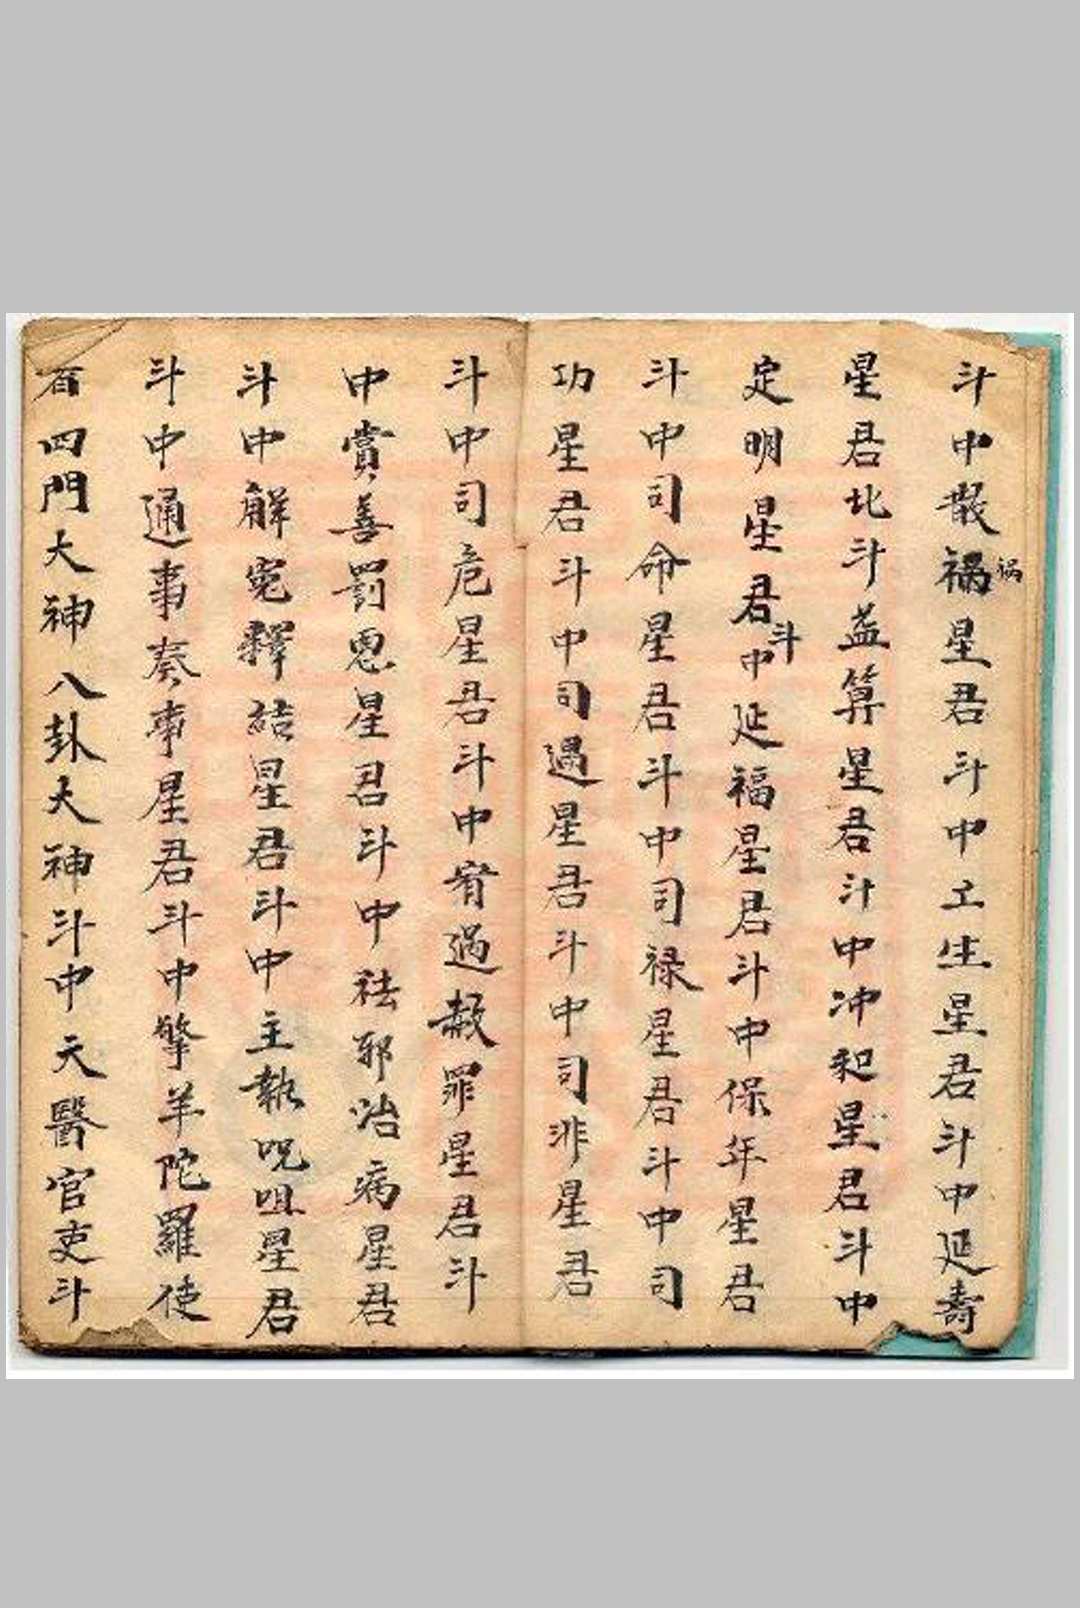 斗中散祸星君斗中上生星君斗中延壽
祸
星君北斗益算星君斗中冲和星君斗中
定明星君斗中延福星君斗中保年星君
斗中司命星君斗中司禄星君斗中司
功星君斗中司過星君斗中司非星君
斗中司危星君斗中宥過赦罪星君斗
中賞善罰惡星君斗中祛邪治病星君
斗中解冤釋結星君斗中主執咒咀星君
斗中通事奏事星君斗中擎羊陀羅使
者四門大神八卦大神斗中天醫官吏斗